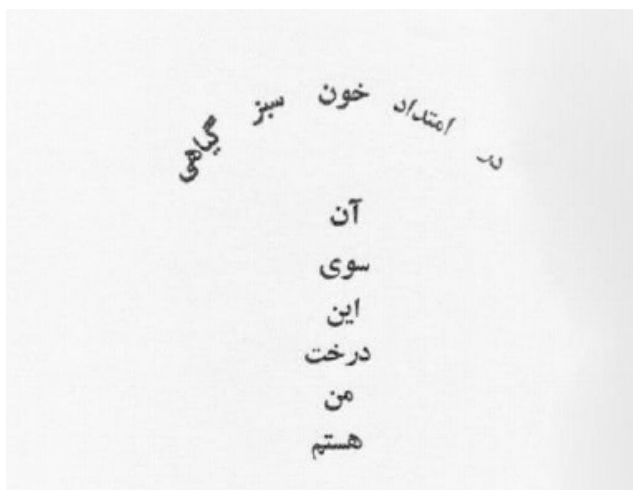 در امتداد خون سبز گیاهی
آن
سوی
این
درخت
من
هستم